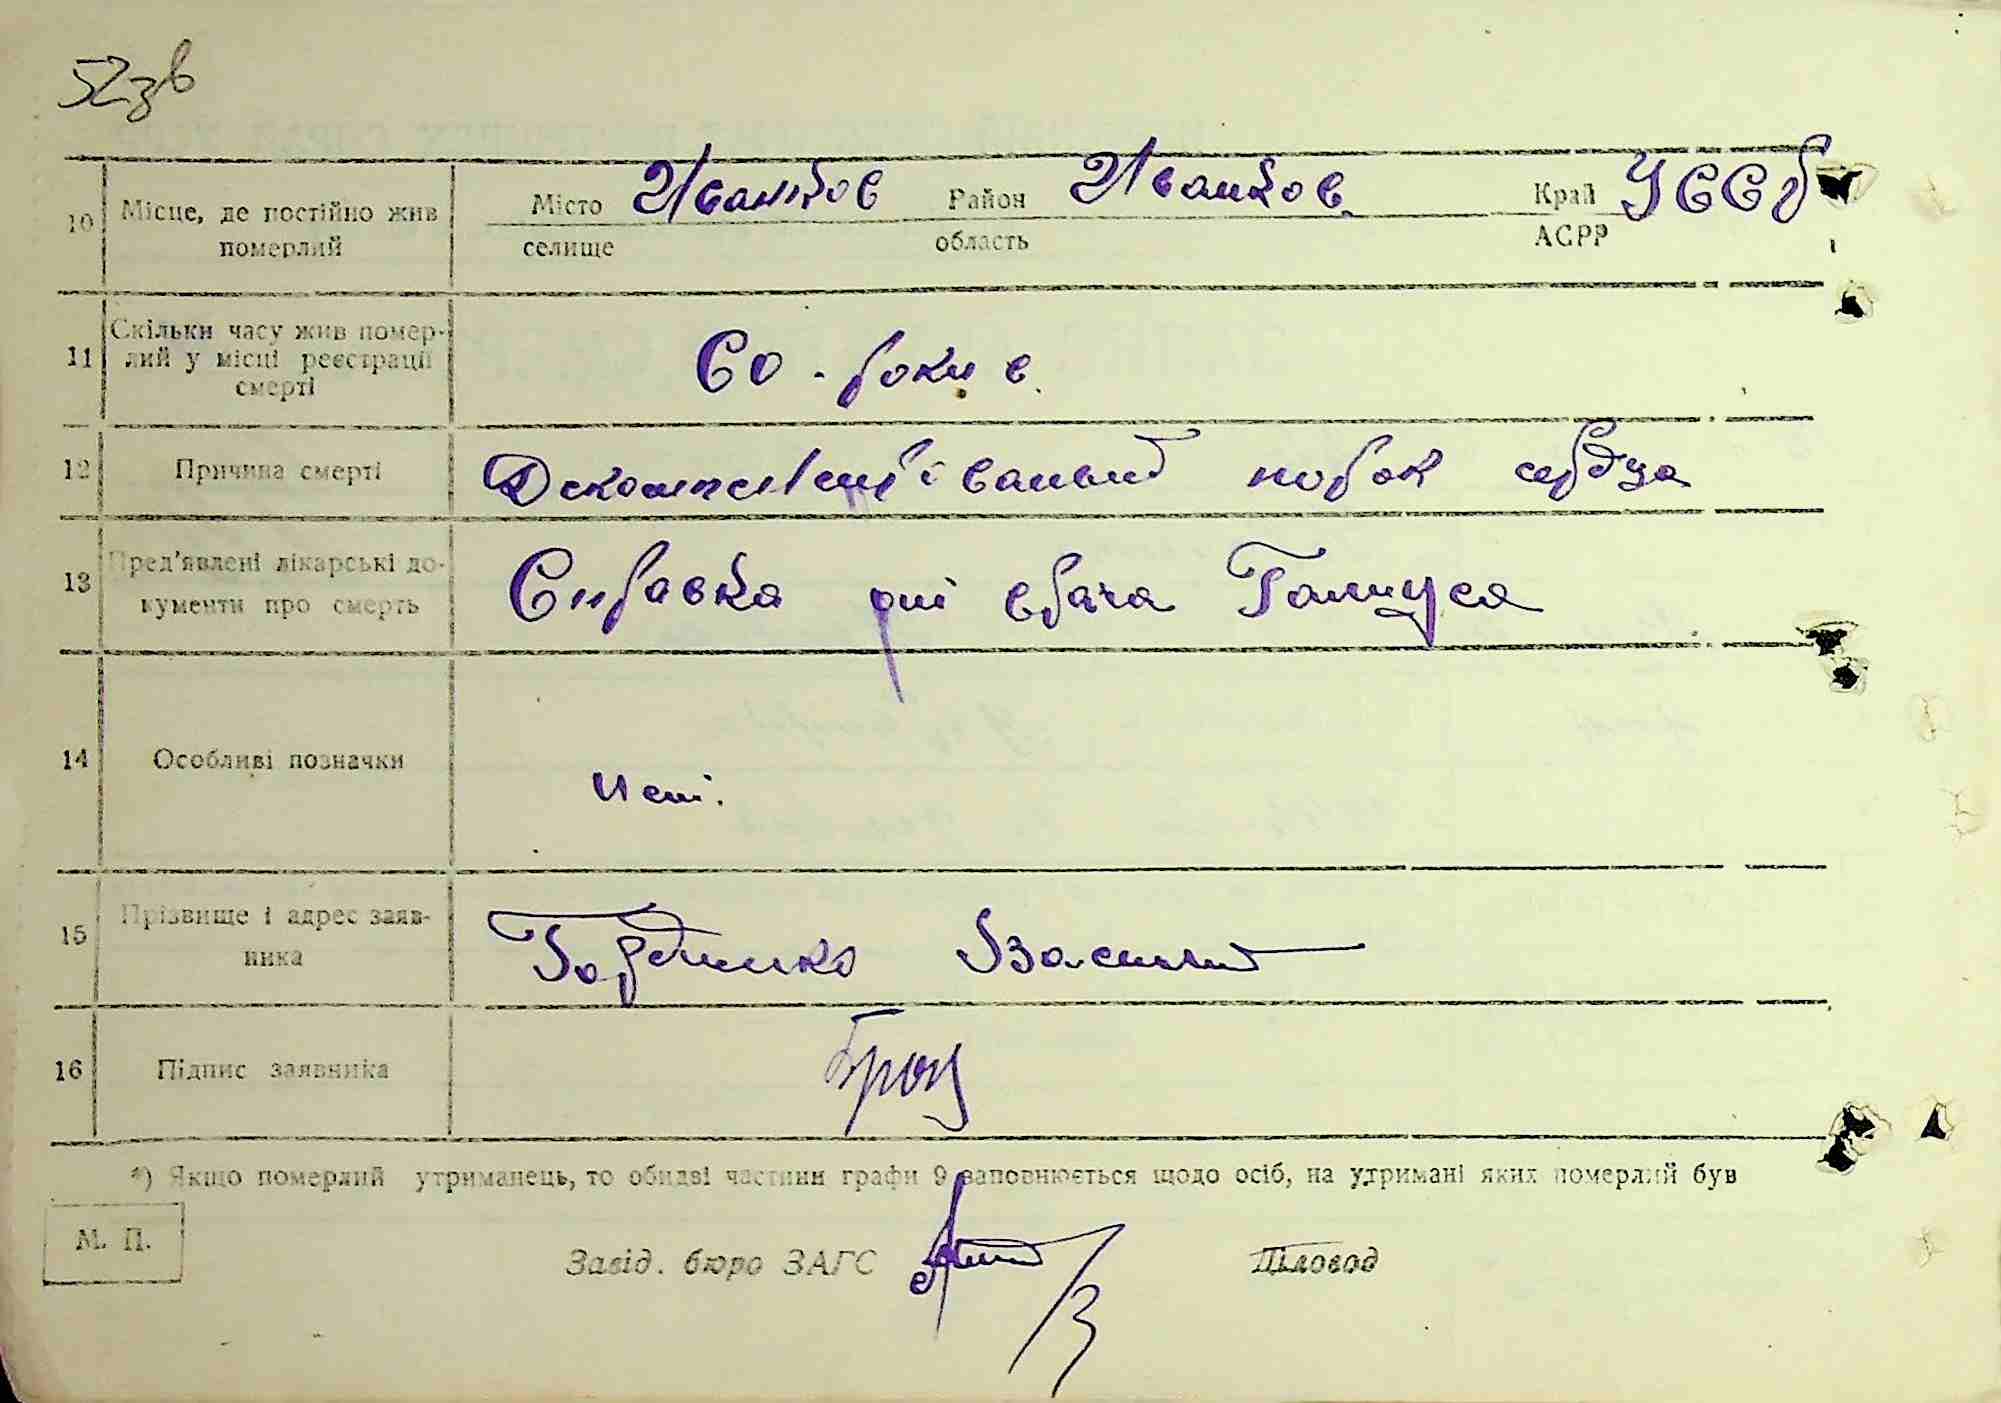 52зв
10 Місце, де постійно жив померлий Місто селище Иванков Район область Иванков Край АСРР УССР
11 Скільки часу жив помер-
лий у місці реєстрації
смерті 60 - рокив.
12 Причина смерті порок сердца
13 Пред'явлені лікарські до-
кументи про смерть Справка врача
14 Особливі позначки
нет.
15 Прізвище і адрес заяв-
ника
16 Підпис заявника
*) Якщо померлий утриманець, то обидві частини графи 9 заповнюється щодо осіб, на утримані яких померлий був
М. П.
Завід. бюро ЗАГС Діловод